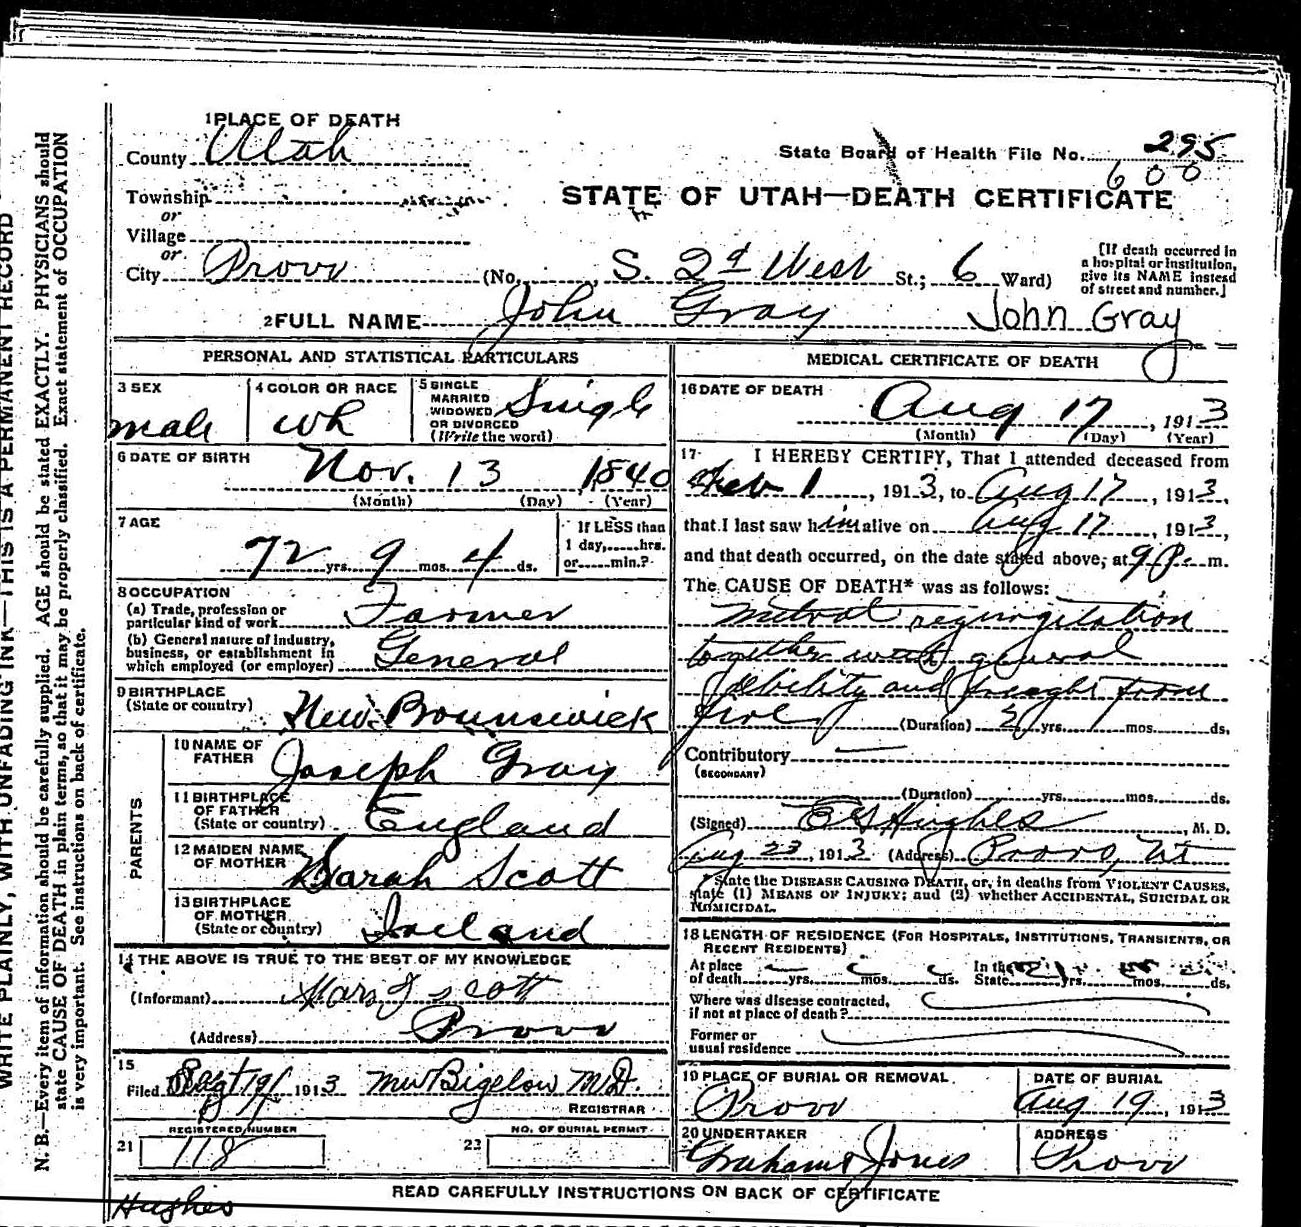 WRITE PLAINLY, WITH UNFADING INK—THIS IS A PERMANENT RECORD
N. B.—Every item of information should be carefully supplied. AGE should be stated EXACTLY. PHYSICIANS should
state CAUSE OF DEATH in plain terms, so that it may be properly classified. Exact statement of OCCUPATION
is very important. See instructions on back of certificate.
1 PLACE OF DEATH
County Utah
State Board of Health File No. 295
600
Township
or
STATE OF UTAH—DEATH CERTIFICATE
Village
or
City Provo (No. S. 2d West St.; 6 Ward)
[If death occurred in
a hospital or institution,
give its NAME instead
of street and number.]
2 FULL NAME John Gray John Gray
PERSONAL AND STATISTICAL PARTICULARS
3 SEX
male
4 COLOR OR RACE
wh
5 SINGLE
MARRIED
WIDOWED
OR DIVORCED
(Write the word)
Single
6 DATE OF BIRTH
Nov. 13 1840
(Month) (Day) (Year)
7 AGE
72 yrs. 9 mos. 4 ds.
If LESS than
1 day,......hrs.
or......min.?
8 OCCUPATION
(a) Trade, profession or
particular kind of work Farmer
(b) General nature of Industry,
business, or establishment in
which employed (or employer) General
9 BIRTHPLACE
(State or country) New Brunswick
PARENTS
10 NAME OF
FATHER Joseph Gray
11 BIRTHPLACE
OF FATHER
(State or country) England
12 MAIDEN NAME
OF MOTHER Sarah Scott
13 BIRTHPLACE
OF MOTHER
(State or country) Ireland
14 THE ABOVE IS TRUE TO THE BEST OF MY KNOWLEDGE
(Informant) Scott
(Address) Provo
15
Filed 1913 MW Bigelow M.D.
REGISTRAR
REGISTERED NUMBER
21 118
NO. OF BURIAL PERMIT
22
MEDICAL CERTIFICATE OF DEATH
16 DATE OF DEATH
Aug 17, 1913
(Month) (Day) (Year)
17 I HEREBY CERTIFY, That I attended deceased from
Feb 1, 1913, to Aug 17, 1913,
that I last saw him alive on Aug 17, 1913,
and that death occurred, on the date stated above, at 9 P. m.
The CAUSE OF DEATH* was as follows:
Mitral regurgitation
together with general
debility and from
(Duration) 2 yrs. mos. ds.
Contributory
(SECONDARY)
(Duration) yrs. mos. ds.
(Signed) Hughes, M. D.
Aug 23, 1913 (Address) Provo, Ut
State the DISEASE CAUSING DEATH, or, in deaths from VIOLENT CAUSES,
state (1) MEANS OF INJURY; and (2) whether ACCIDENTAL, SUICIDAL OR
HOMICIDAL.
18 LENGTH OF RESIDENCE (FOR HOSPITALS, INSTITUTIONS, TRANSIENTS, OR
RECENT RESIDENTS)
At place
of death yrs. mos. ds.
In the
State yrs. mos. ds.
Where was disease contracted,
if not at place of death?
Former or
usual residence
19 PLACE OF BURIAL OR REMOVAL
Provo
DATE OF BURIAL
Aug 19, 1913
20 UNDERTAKER
Graham & Jones
ADDRESS
Provo
READ CAREFULLY INSTRUCTIONS ON BACK OF CERTIFICATE
Hughes